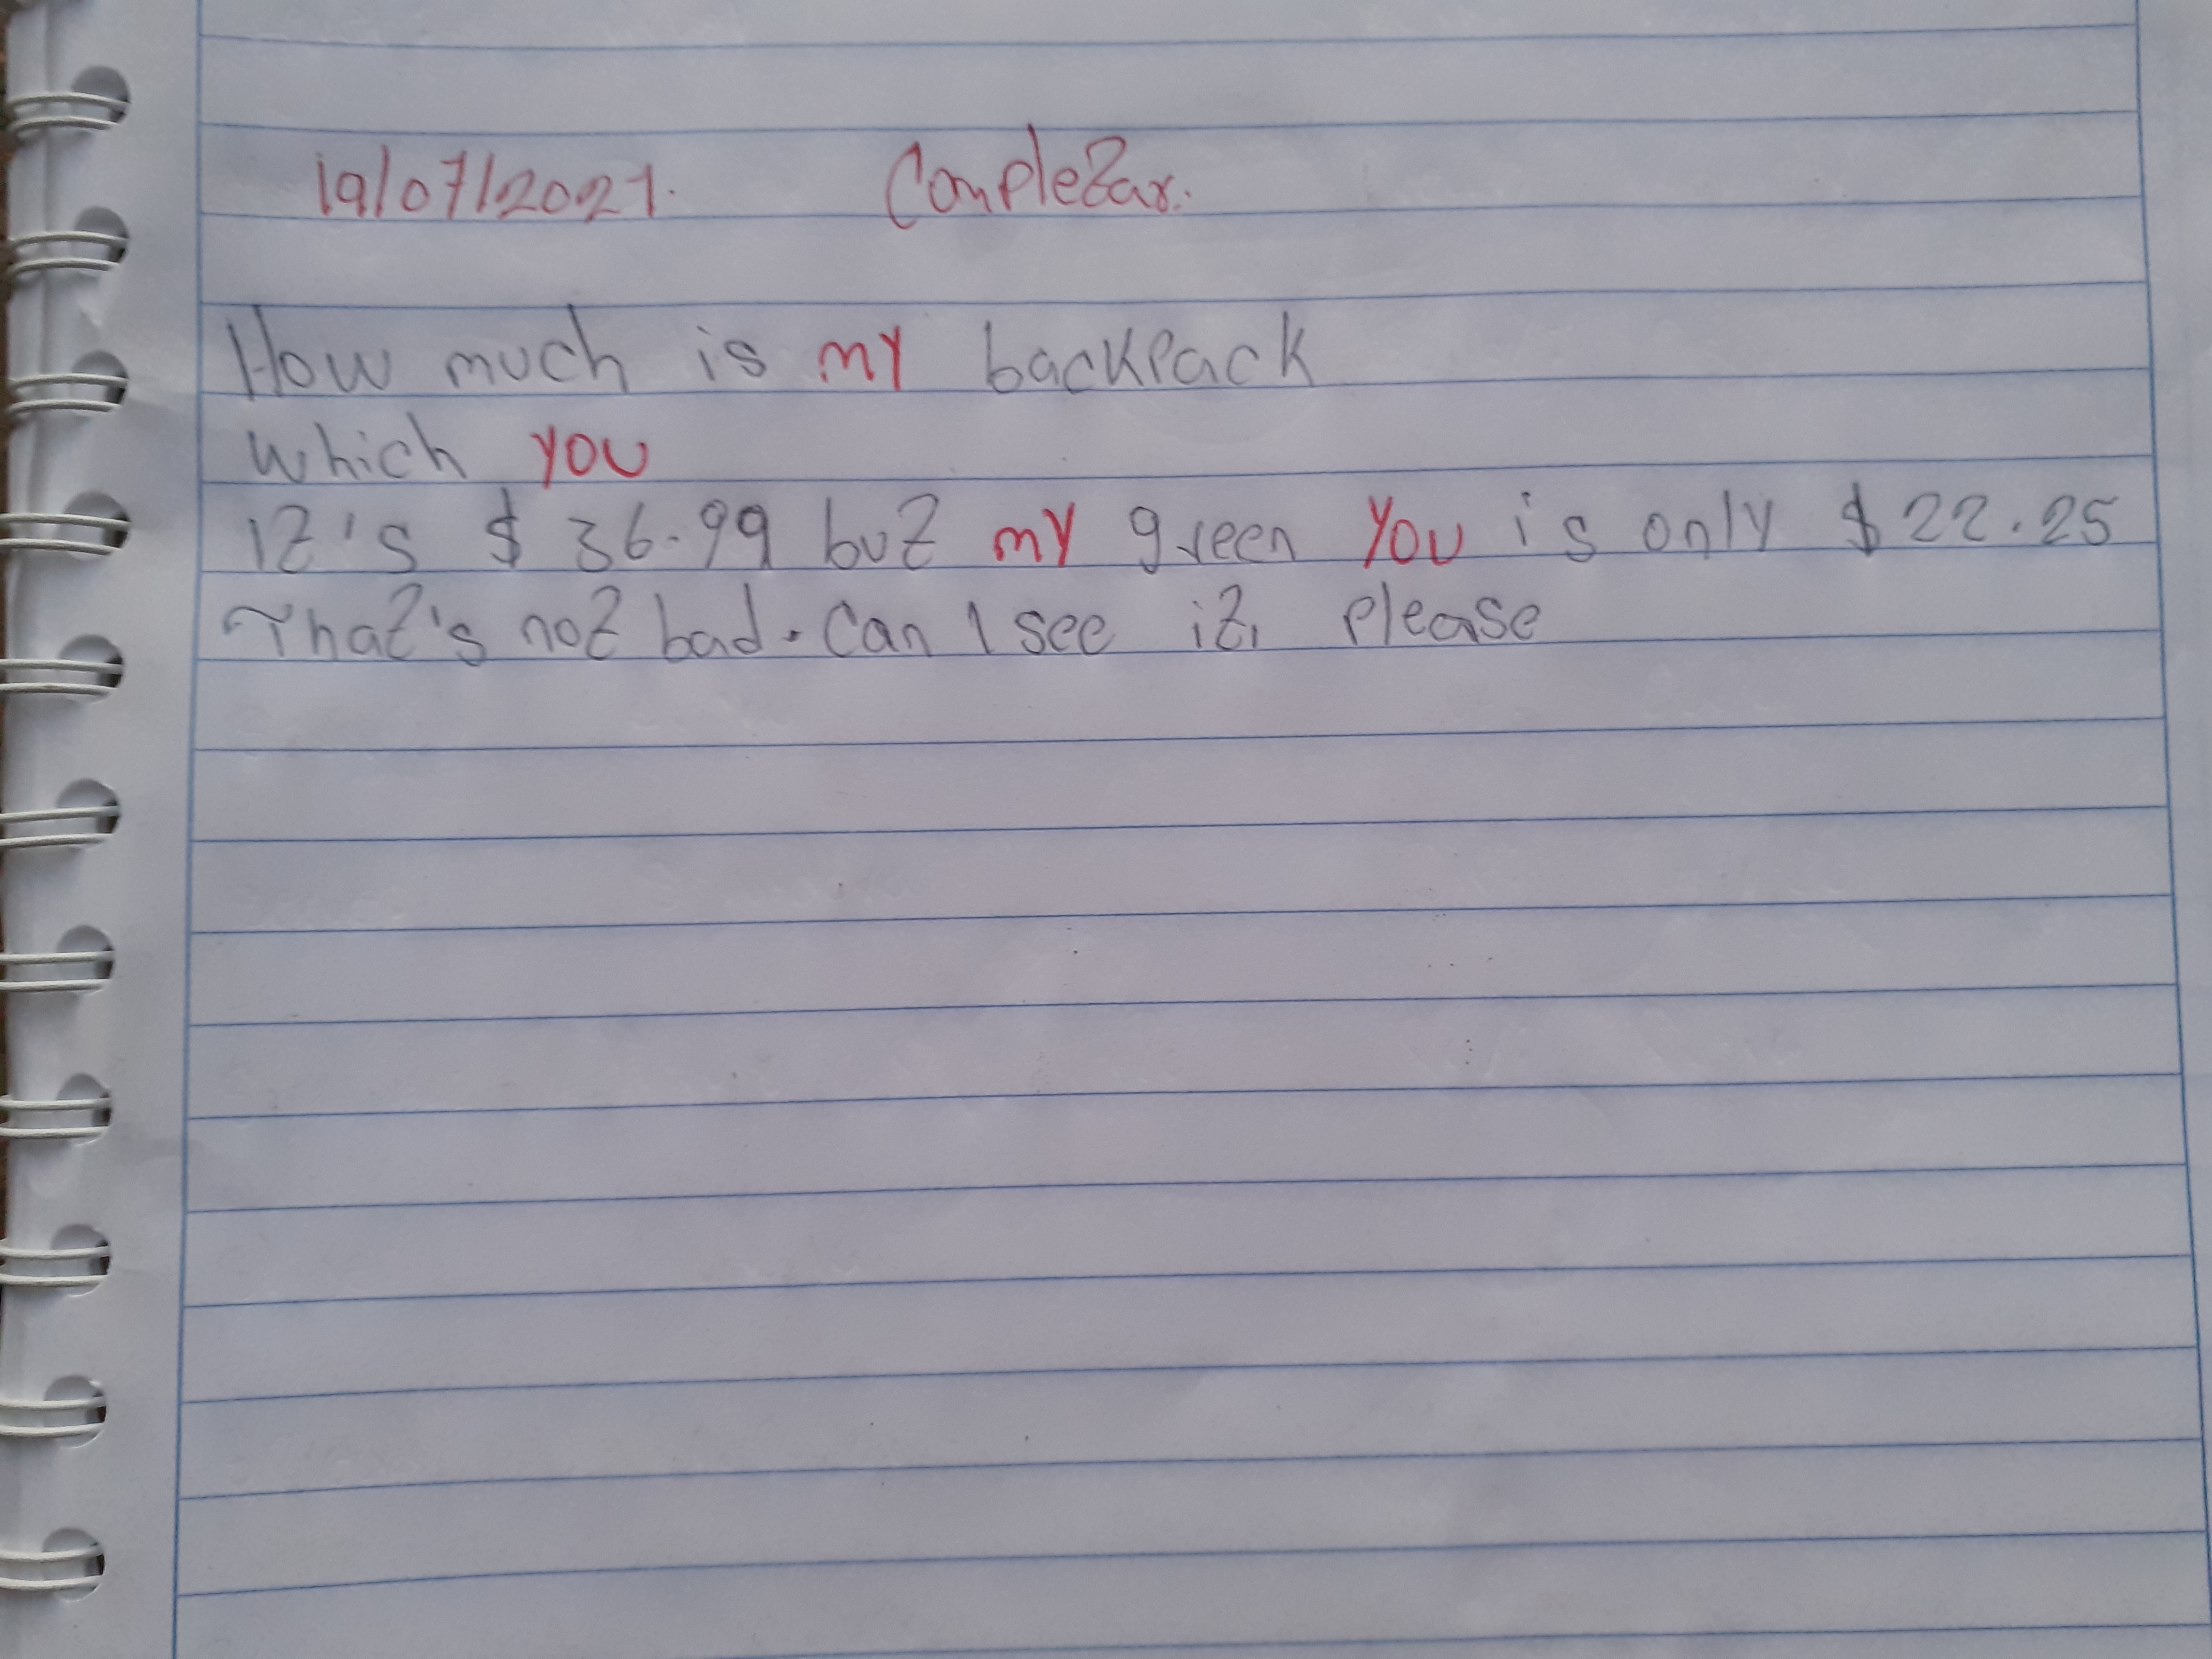 19/07/2021. Completar.
How much is my backpack
which you
it's $ 36.99 but my green you is only $ 22.25
That's not bad. Can I see it, please